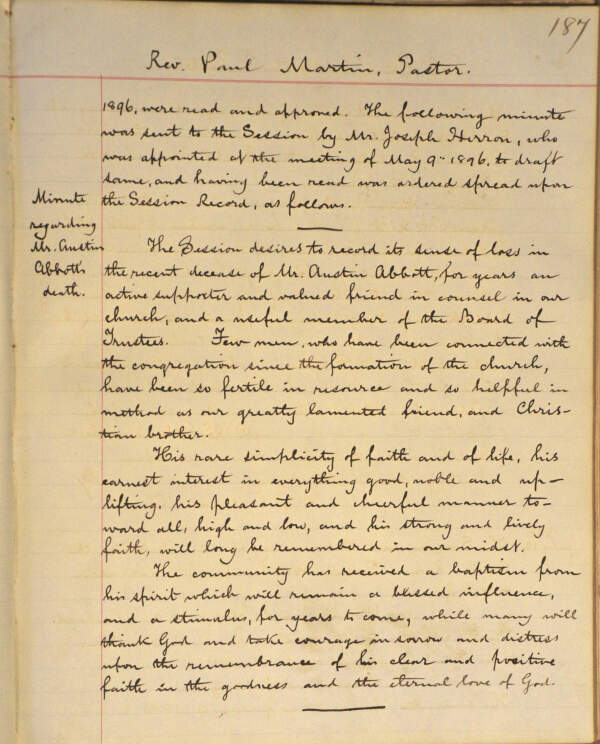 187
Rev. Paul Martin, Pastor.
1896, were read and approved. The following minute
was sent to the Session by Mr. Joseph Herron, who
was appointed at the meeting of May 9th 1896, to draft
same, and having been read was ordered spread upon
the Session Record, as follows.
Minute
regarding
Mr. Austin
Abbott's
death.
The Session desires to record its sense of loss in
the recent decease of Mr. Austin Abbott, for years an
active supporter and valued friend in counsel in our
church, and a useful member of the Board of
Trustees. Few men, who have been connected with
the congregation since the formation of the church,
have been so fertile in resource and so helpful in
method as our greatly lamented friend, and Chris-
tian brother.
His rare simplicity of faith and of life, his
earnest interest in everything good, noble and up-
lifting, his pleasant and cheerful manner to-
ward all, high and low, and his strong and lively
faith, will long be remembered in our midst.
The community has received a baptism from
his spirit which will remain a blessed influence,
and a stimulus, for years to come, while many will
thank God and take courage in sorrow and distress
upon the remembrance of his clear and positive
faith in the goodness and the eternal love of God.